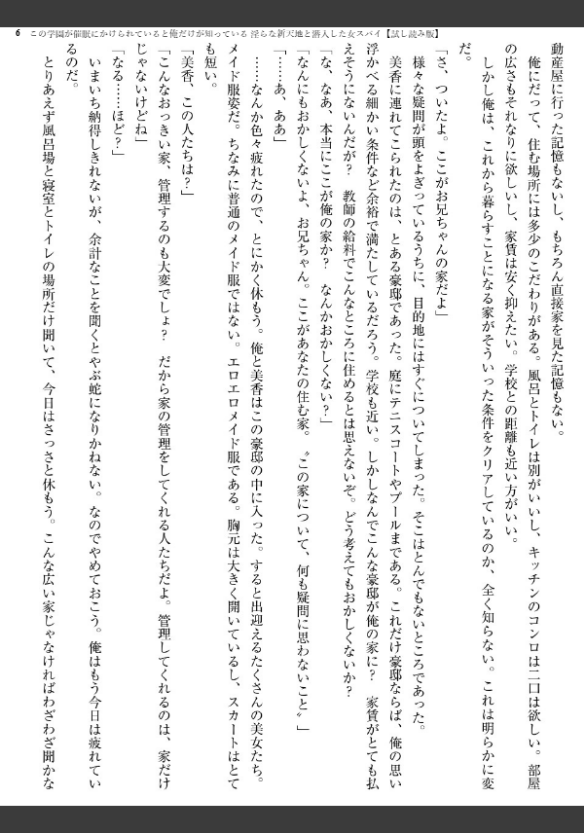 6 この学園が催眠にかけられていると俺だけが知っている 淫らな新天地と潜入した女スパイ【試し読み版】
動産屋に行った記憶もないし、もちろん直接家を見た記憶もない。
　俺にだって、住む場所には多少のこだわりがある。風呂とトイレは別がいいし、キッチンのコンロは二口は欲しい。部屋
の広さもそれなりに欲しいし、家賃は安く抑えたい。学校との距離も近い方がいい。
　しかし俺は、これから暮らすことになる家がそういった条件をクリアしているのか、全く知らない。これは明らかに変
だ。
「さ、ついたよ。ここがお兄ちゃんの家だよ」
　様々な疑問が頭をよぎっているうちに、目的地にはすぐについてしまった。そこはとんでもないところであった。
　美香に連れてこられたのは、とある豪邸であった。庭にテニスコートやプールまである。これだけ豪邸ならば、俺の思い
浮かべる細かい条件など余裕で満たしているだろう。学校も近い。しかしなんでこんな豪邸が俺の家に？　家賃がとても払
えそうにないんだが？　教師の給料でこんなところに住めるとは思えないぞ。どう考えてもおかしくないか？
「な、なあ、本当にここが俺の家か？　なんかおかしくない？」
「なんにもおかしくないよ、お兄ちゃん。ここがあなたの住む家。〝この家について、何も疑問に思わないこと〟」
「……あ、ああ」
　……なんか色々疲れたので、とにかく休もう。俺と美香はこの豪邸の中に入った。すると出迎えるたくさんの美女たち。
メイド服姿だ。ちなみに普通のメイド服ではない。エロエロメイド服である。胸元は大きく開いているし、スカートはとて
も短い。
「美香、この人たちは？」
「こんなおっきい家、管理するのも大変でしょ？　だから家の管理をしてくれる人たちだよ。管理してくれるのは、家だけ
じゃないけどね」
「なる……ほど？」
　いまいち納得しきれないが、余計なことを聞くとやぶ蛇になりかねない。なのでやめておこう。俺はもう今日は疲れてい
るのだ。
　とりあえず風呂場と寝室とトイレの場所だけ聞いて、今日はさっさと休もう。こんな広い家じゃなければわざわざ聞かな